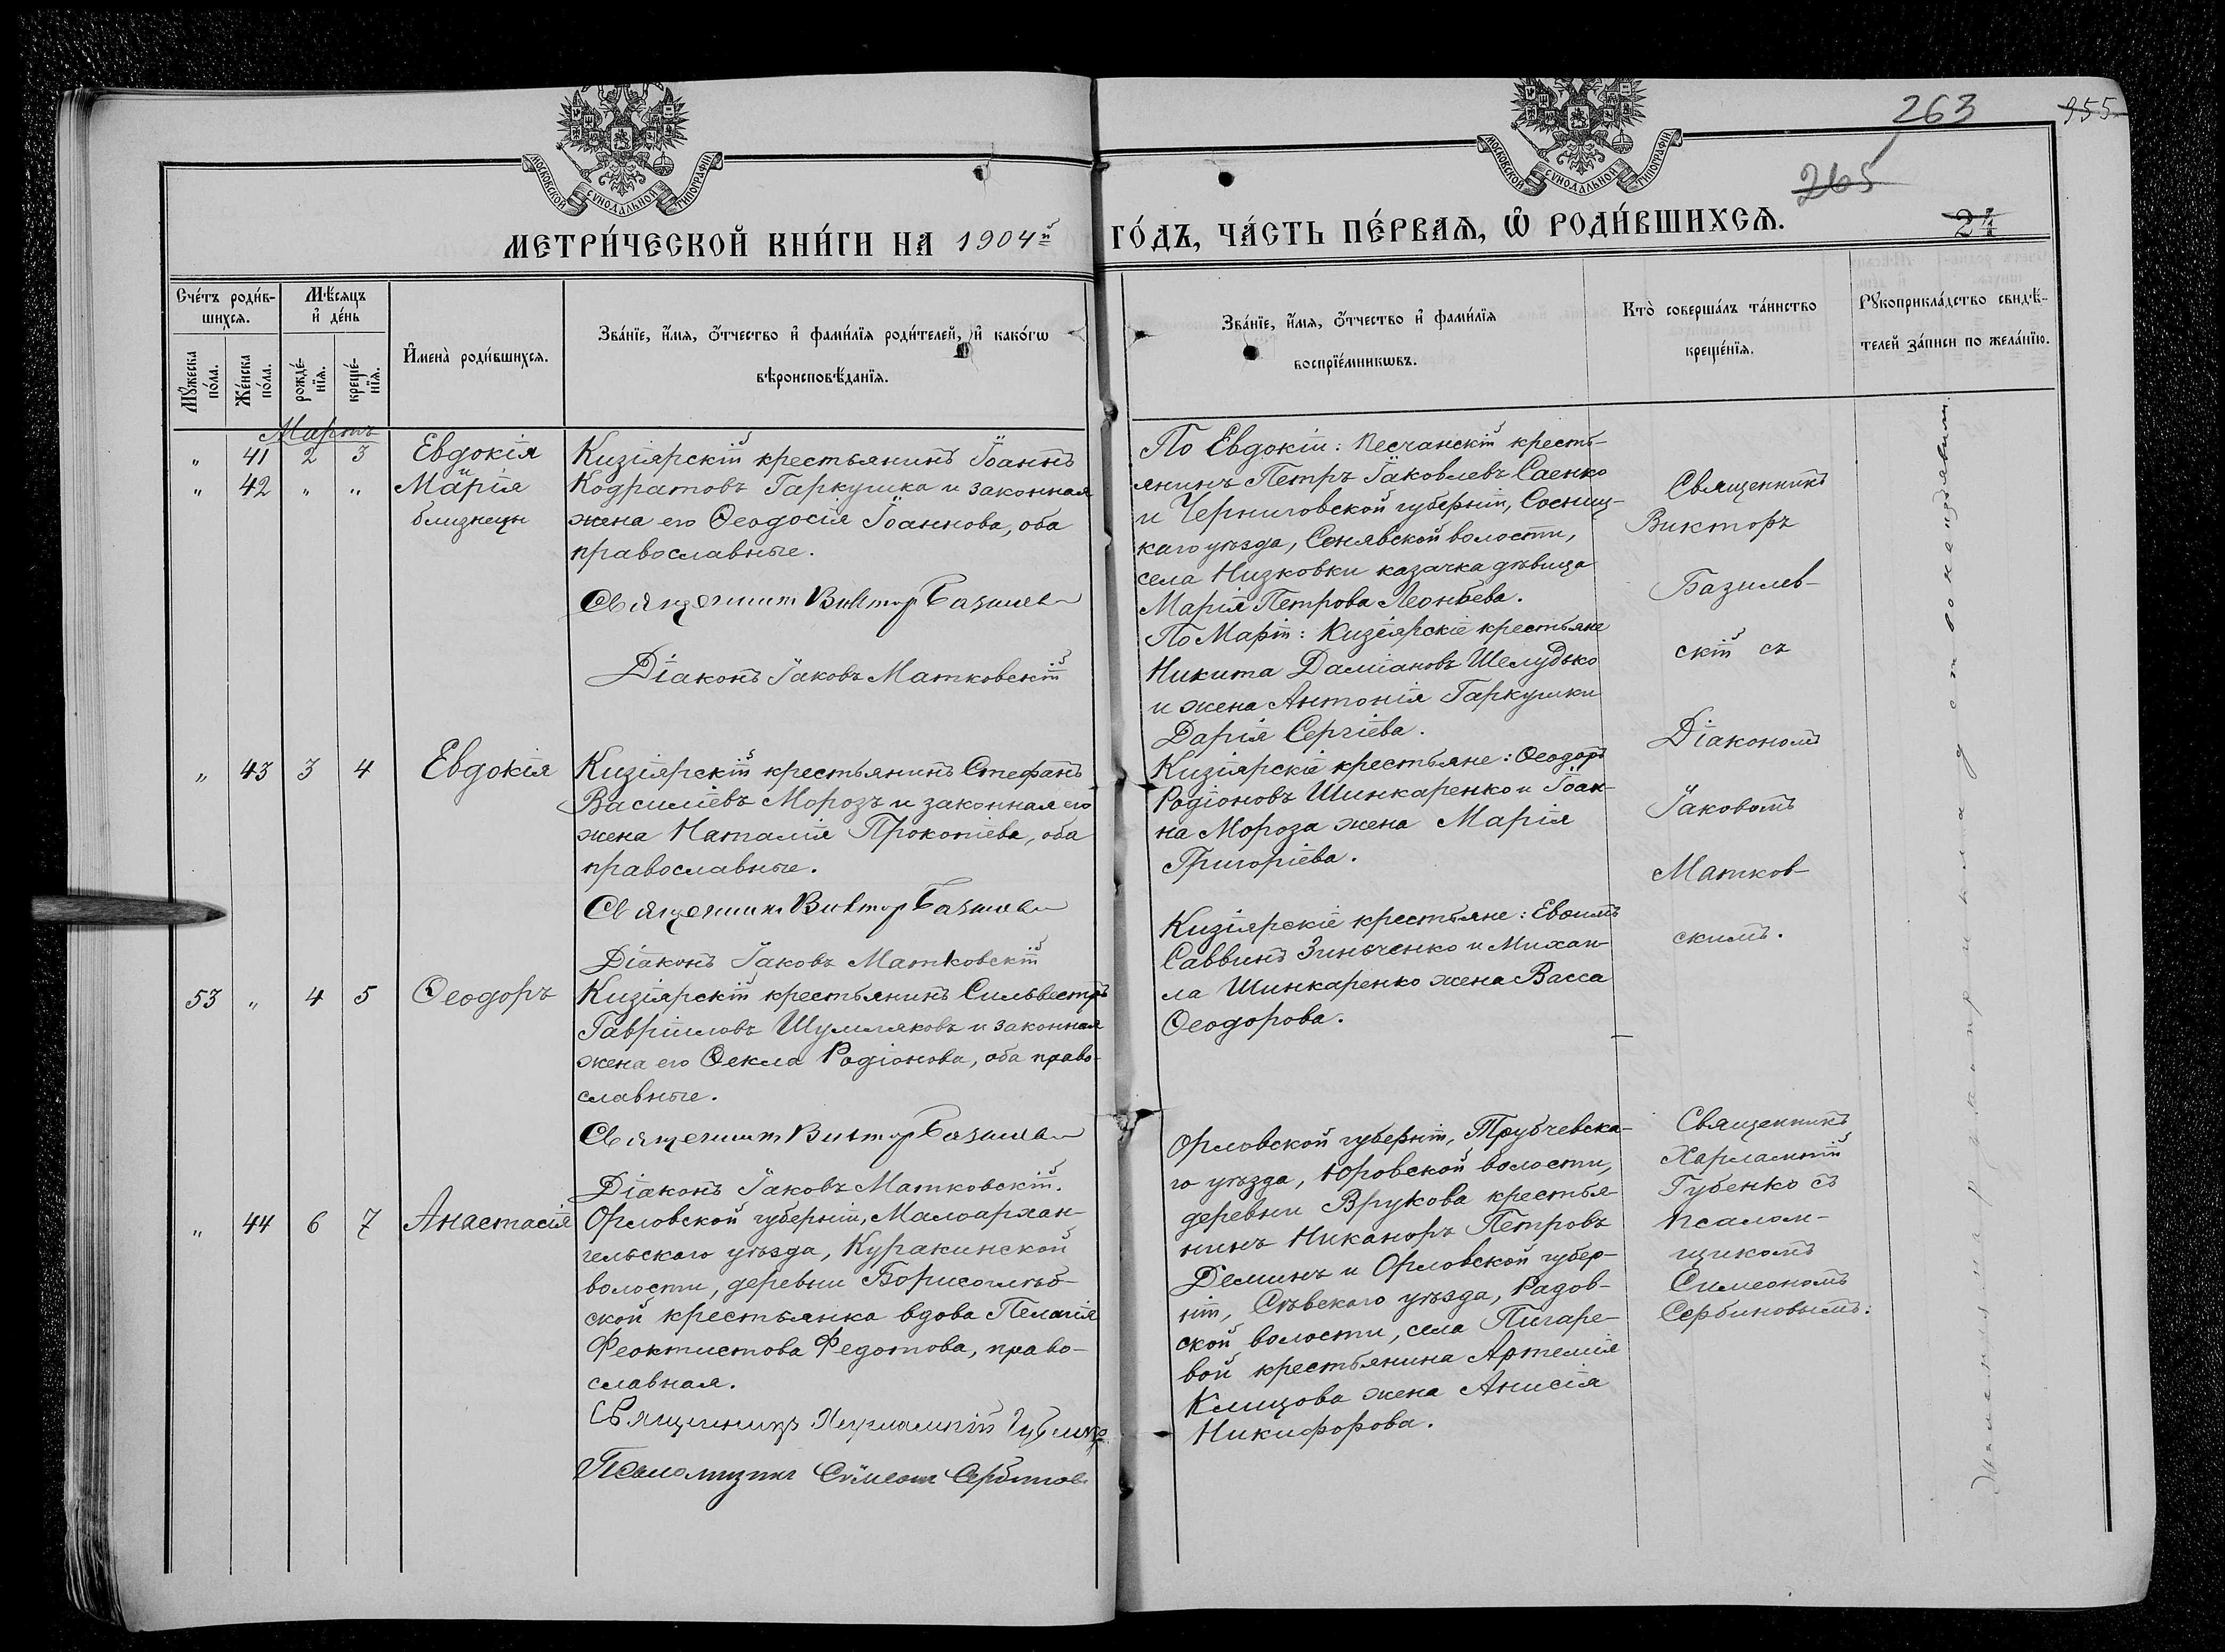 263
955
265
24
МОСКОВСКОЙ СѴНОДАЛЬНОЙ ТИПОГРАФІИ
МОСКОВСКОЙ СѴНОДАЛЬНОЙ ТИПОГРАФІИ
МЕТРИ́ЧЕСКОЙ КНИ́ГИ НА 1904й
ГО́ДЪ, ЧА́СТЬ ПЕ́РВАѦ, Ѽ РОДИ́ВШИХСѦ.
Сче́тъ роди́в-
шихсѧ.
Мꙋ́жеска
по́ла.
Же́нска
по́ла.
Мѣ́сѧцъ
и҆ де́нь
рожде́-
нїѧ.
креще́-
нїѧ.
И҆мена̀ роди́вшихсѧ.
Зва́нїе, и҆́мѧ, ѻ҆́тчество и҆ фами́лїѧ роди́телей, и҆ како́гѡ
вѣроисповѣ́данїѧ.
Зва́нїе, и҆́мѧ, ѻ҆́тчество и҆ фами́лїѧ
воспрїе́мникѡвъ.
Кто̀ соверша́лъ та́инство
креще́нїѧ.
Рꙋкоприкла́дство свидѣ́-
телей за́писи по жела́нїю.
Мартъ
" 41 2 3 Евдокія
и
" 42 " " Марія
близнецы
Кизіярскій крестьянинъ Іоаннъ
Кодратовъ Гаркушка и законная
жена его Ѳеодосія Іоаннова, оба
православные.
Священник Виктор Базилев
Діаконъ Іаковъ Матковскій
По Евдокіи: Песчанскій кресть-
янинъ Петръ Іаковлевъ Саенко
и Черниговской губерніи, Сосниц-
каго уѣзда, Сенявской волости,
села Низковки казачка дѣвица
Марія Петрова Леоньева.
По Маріи: Кизіярскіе крестьяне
Никита Даміановъ Шелудько
и жена Антонія Гаркушки
Дарія Сергіева.
Священникъ
Викторъ
Базилев-
скій съ
Діакономъ
Іаковомъ
Матков-
скимъ.
" 43 3 4 Евдокія
Кизіярскій крестьянинъ Стефанъ
Василіевъ Морозъ и законная его
жена Наталія Прокопіева, оба
православные.
Священник Виктор Базилев
Діаконъ Іаковъ Матковскій
Кизіярскіе крестьяне: Ѳеодоръ
Родіоновъ Шинкаренко и Іоан-
на Мороза жена Марія
Григоріева.
53 " 4 5 Ѳеодоръ
Кизіярскій крестьянинъ Сильвестръ
Гавріиловъ Шумляковъ и законная
жена его Ѳекла Родіонова, оба право-
славные.
Священник Виктор Базилев
Діаконъ Іаковъ Матковскій.
Кизіярскіе крестьяне: Евѳимъ
Саввинъ Зинченко и Михаи-
ла Шинкаренко жена Васса
Ѳеодорова.
" 44 6 7 Анастасія
Орловской губерніи, Малоархан-
гельскаго уѣзда, Куракинской
волости, деревни Борисоглѣб-
ской крестьянка вдова Пелагія
Феоктистова Федотова, право-
славная.
Священникъ Харлампій Губенко
Псаломщик Симеон Сербинов
Орловской губерніи, Трубчевска-
го уѣзда, Юровской волости,
деревни Врукова крестья-
нинъ Никаноръ Петровъ
Деминъ и Орловской губер-
ніи, Сѣвскаго уѣзда, Радов-
ской волости, села Пигаре-
вой крестьянина Артемія
Клицова жена Анисія
Никифорова.
Священникъ
Харлампій
Губенко съ
псалом-
щикомъ
Симеономъ
Сербиновымъ.